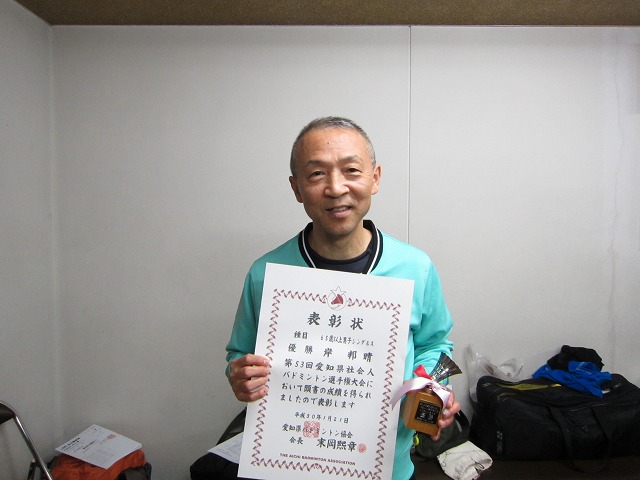 表彰状
種目　65歳以上男子シングルス
優勝 岸 邦晴
第53回愛知県社会人
バドミントン選手権大会に
おいて頭書の成績を得られ
ましたので表彰します
平成30年1月21日
愛知県バドミントン協会
会長 末岡熙章
THE AICHI BADMINTON ASSOCIATION